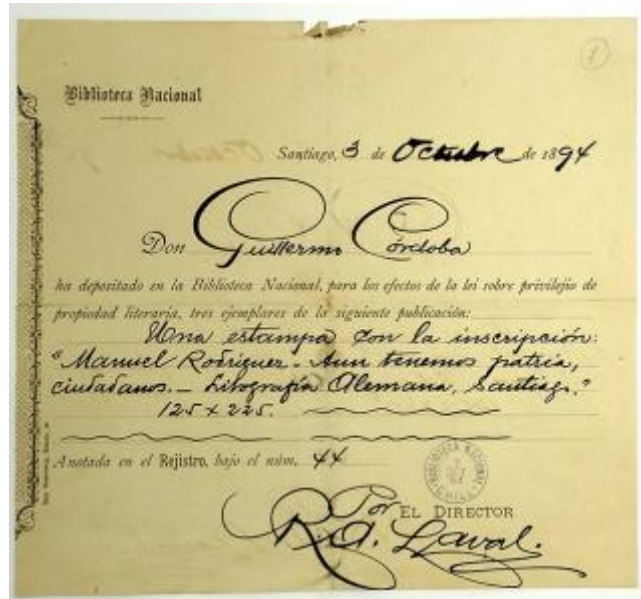 1
Biblioteca Nacional
Santiago, 3 de Octubre de 1894
Don Guillermo Córdoba
ha depositado en la Biblioteca Nacional, para los efectos de la lei sobre privilejio de
propiedad literaria, tres ejemplares de la siguiente publicación:
Una estampa con la inscripción:
"Manuel Rodriguez - Aun tenemos patria,
ciudadanos. - Litografia Alemana, Santiago."
125 x 225.
Anotada en el Rejistro, bajo el núm. 44
BIBLIOTECA NACIONAL
CHILE
Por EL DIRECTOR
R. A. Laval.